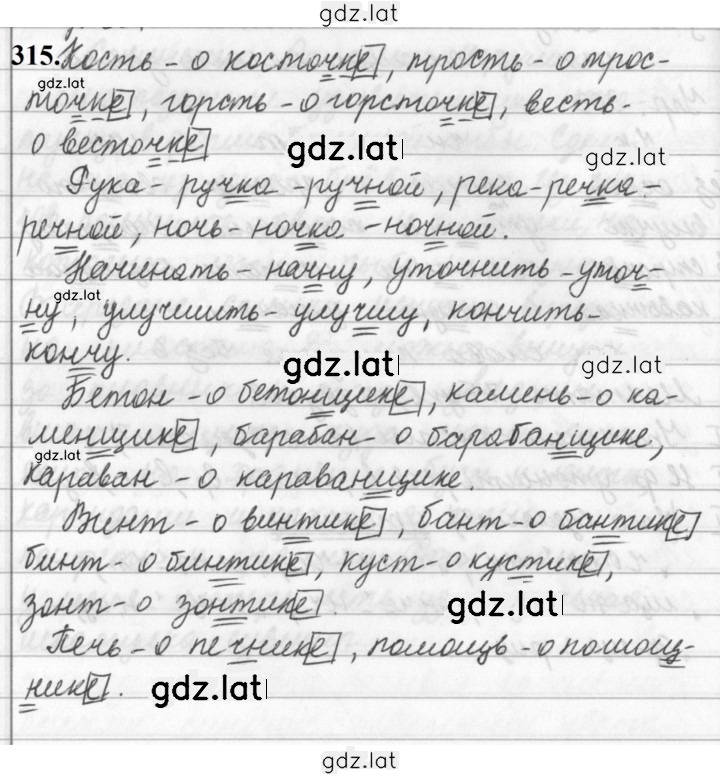 gdz.lat
315. Кость - о косточке, трость - о трос-
gdz.lat
точке, горсть - о горсточке, весть -
о весточке
gdz.lat
gdz.lat
Рука - ручка - ручной, река - речка -
речной, ночь - ночка - ночной.
Начинать - начну, уточнить - уточ-
gdz.lat
ну, улучшить - улучшу, кончить -
кончу.
gdz.lat
gdz.lat
Бетон - о бетонщике, камень - о ка-
менщике, барабан - о барабанщике,
gdz.lat
караван - о караванщике.
Винт - о винтике, бант - о бантике
бинт - о бинтике, куст - о кустике,
зонт - о зонтике.
gdz.lat
Печь - о печнике, помощь - о помощ-
нике.
gdz.lat
gdz.lat